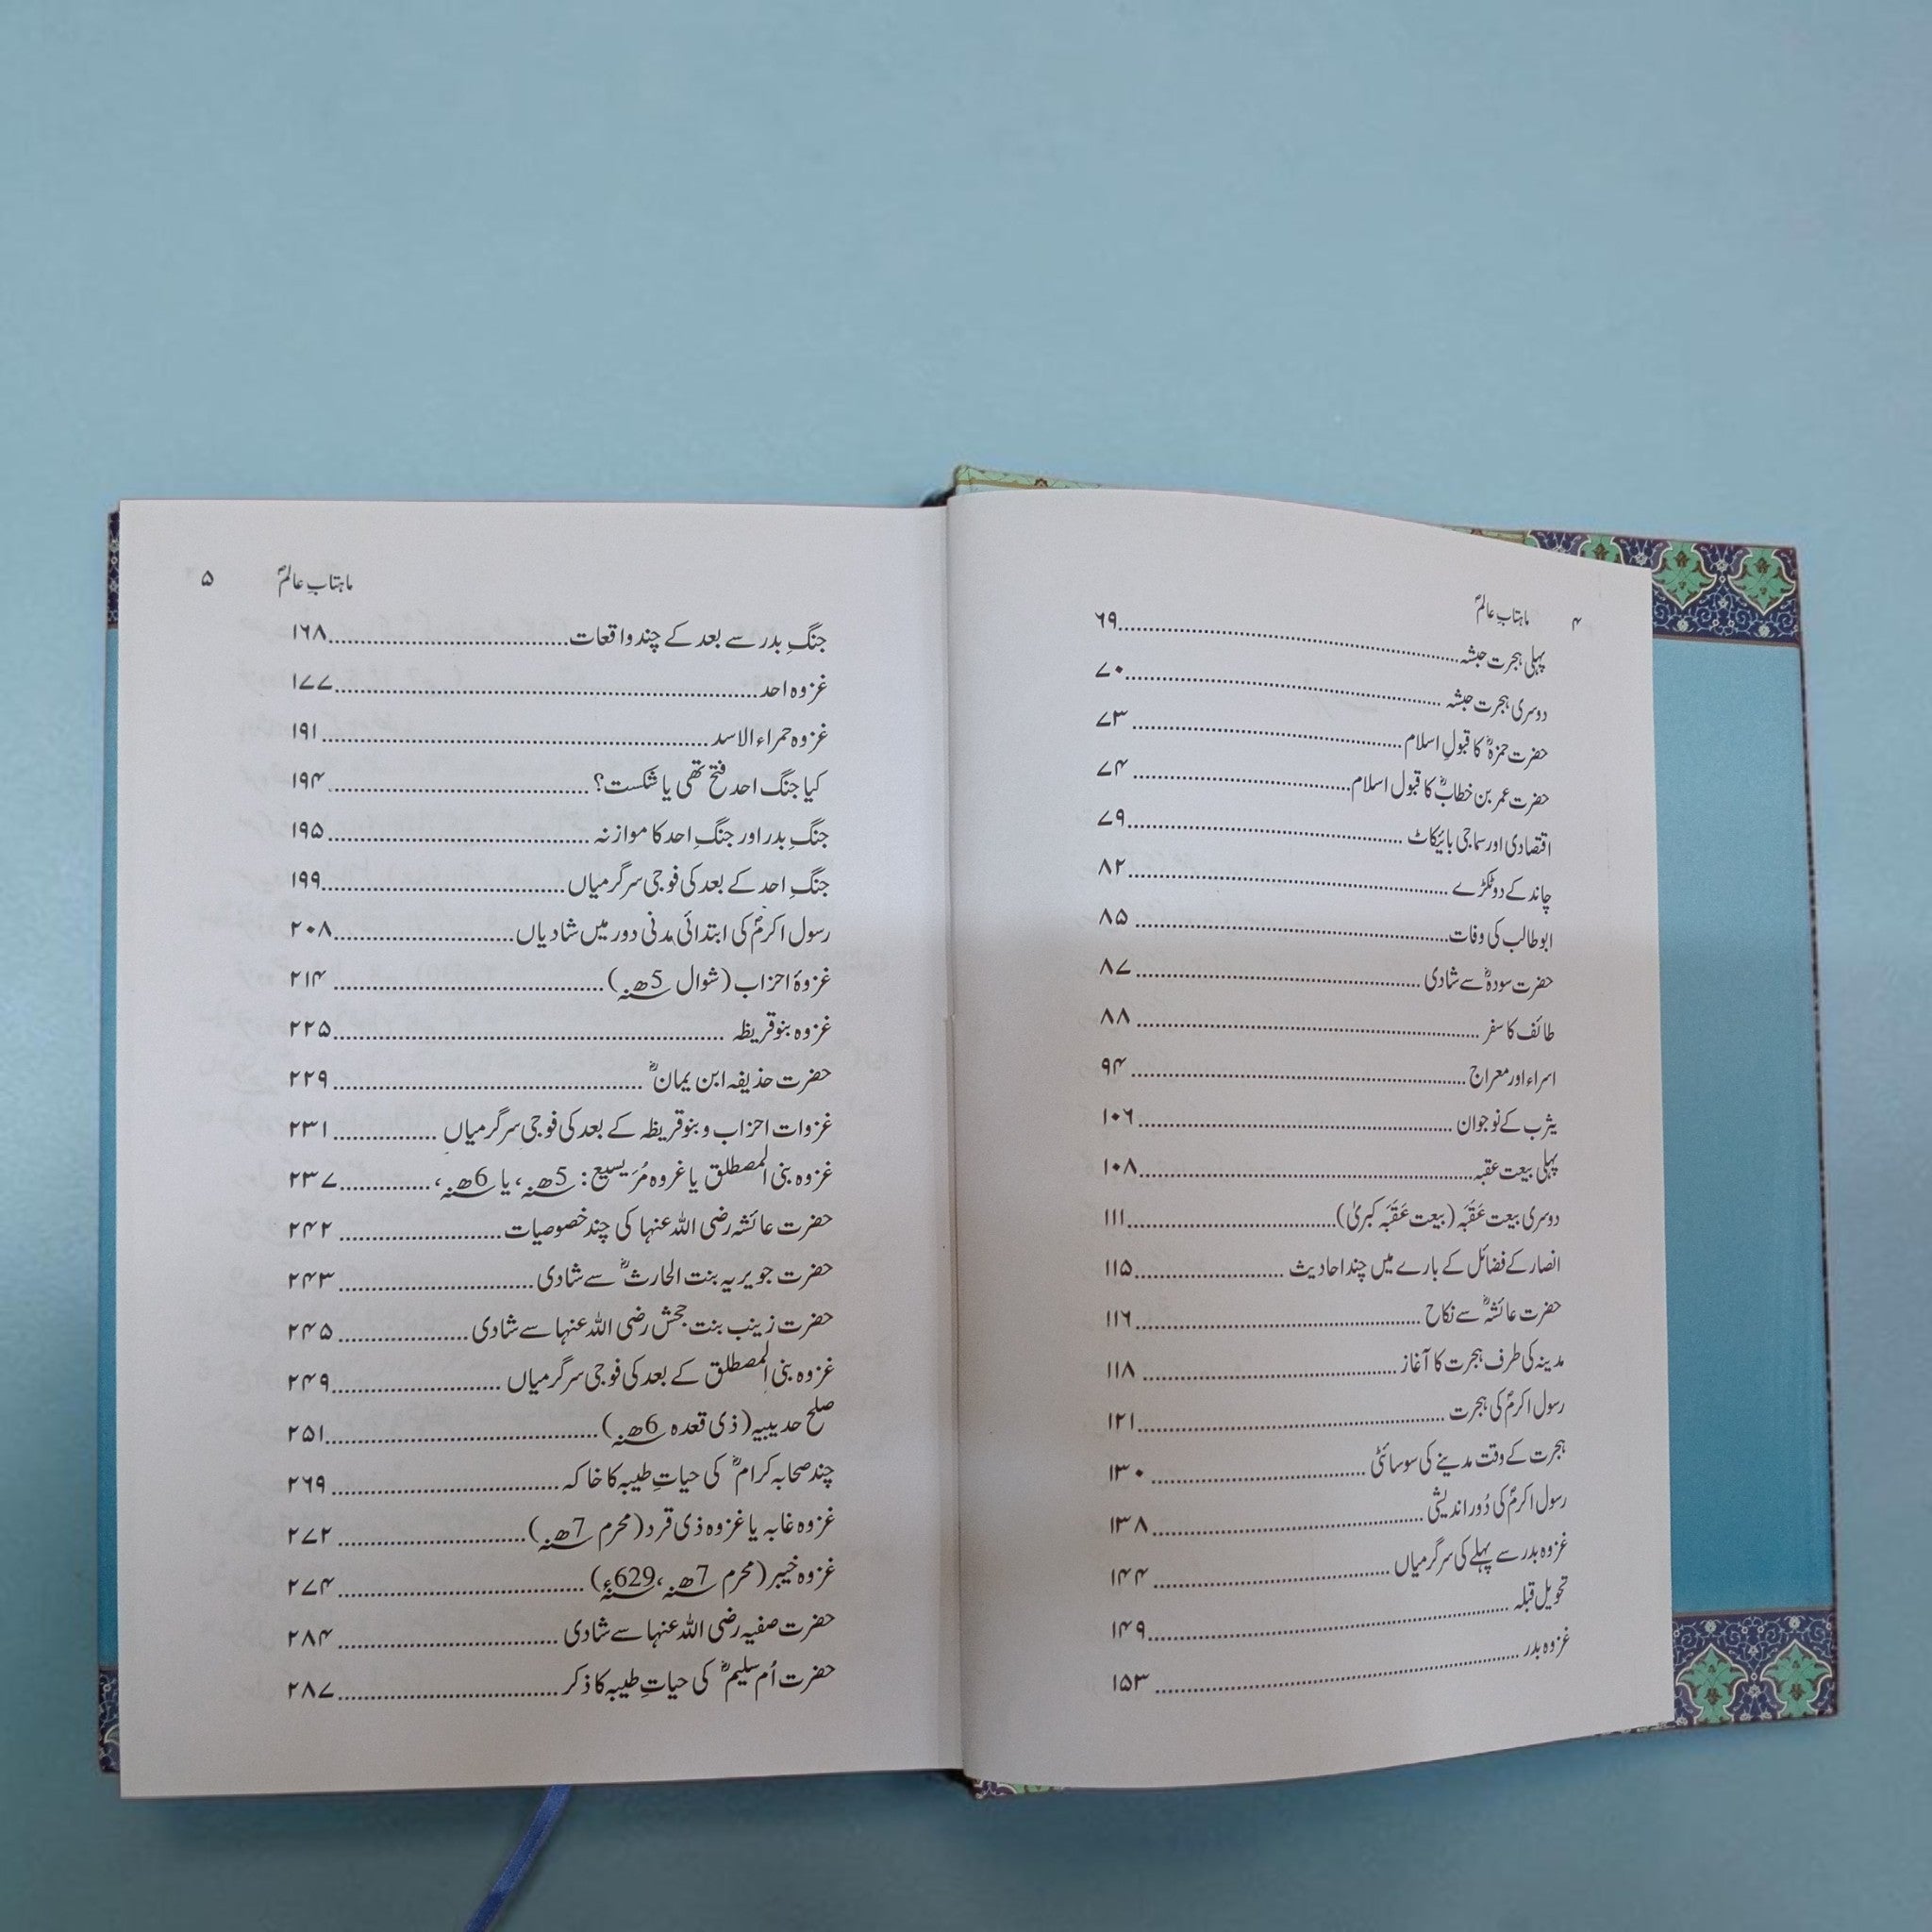 ۴ ماہتابِ عالمؐ
پہلی ہجرت حبشہ...............۶۹
دوسری ہجرت حبشہ...............۷۰
حضرت حمزہؓ کا قبولِ اسلام...............۷۳
حضرت عمر بن خطابؓ کا قبول اسلام...............۷۴
اقتصادی اور سماجی بائیکاٹ...............۷۹
چاند کے دو ٹکڑے...............۸۲
ابو طالب کی وفات...............۸۵
حضرت سودہؓ سے شادی...............۸۷
طائف کا سفر...............۸۸
اسراء اور معراج...............۹۴
یثرب کے نوجوان...............۱۰۶
پہلی بیعت عقبہ...............۱۰۸
دوسری بیعت عَقَبَہ (بیعت عَقَبَہ کبریٰ)...............۱۱۱
انصار کے فضائل کے بارے میں چند احادیث...............۱۱۵
حضرت عائشہؓ سے نکاح...............۱۱۶
مدینہ کی طرف ہجرت کا آغاز...............۱۱۸
رسول اکرمؐ کی ہجرت...............۱۲۱
ہجرت کے وقت مدینے کی سوسائٹی...............۱۳۰
رسول اکرمؐ کی دُور اندیشی...............۱۳۸
غزوہ بدر سے پہلے کی سرگرمیاں...............۱۴۴
تحویل قبلہ...............۱۴۹
غزوہ بدر...............۱۵۳
ماہتابِ عالمؐ ۵
جنگِ بدر سے بعد کے چند واقعات...............۱۶۸
غزوہ احد...............۱۷۷
غزوہ حمراء الاسد...............۱۹۱
کیا جنگ احد فتح تھی یا شکست؟...............۱۹۴
جنگِ بدر اور جنگِ احد کا موازنہ...............۱۹۵
جنگِ احد کے بعد کی فوجی سرگرمیاں...............۱۹۹
رسول اکرمؐ کی ابتدائی مدنی دور میں شادیاں...............۲۰۸
غزوۂ احزاب (شوال 5ھ)...............۲۱۴
غزوہ بنو قریظہ...............۲۲۵
حضرت حذیفہ ابن یمانؓ...............۲۲۹
غزوات احزاب و بنو قریظہ کے بعد کی فوجی سرگرمیاں...............۲۳۱
غزوہ بنی المصطلق یا غزوہ مُرَیسیع: 5ھ، یا 6ھ،...............۲۳۷
حضرت عائشہ رضی اللہ عنہا کی چند خصوصیات...............۲۴۲
حضرت جویریہ بنت الحارثؓ سے شادی...............۲۴۳
حضرت زینب بنت جحش رضی اللہ عنہا سے شادی...............۲۴۵
غزوہ بنی المصطلق کے بعد کی فوجی سرگرمیاں...............۲۴۹
صلح حدیبیہ (ذی قعدہ 6ھ)...............۲۵۱
چند صحابہ کرامؓ کی حیاتِ طیبہ کا خاکہ...............۲۶۹
غزوہ غابہ یا غزوہ ذی قرد (محرم 7ھ)...............۲۷۲
غزوہ خیبر (محرم 7ھ، 629ء)...............۲۷۴
حضرت صفیہ رضی اللہ عنہا سے شادی...............۲۸۴
حضرت اُم سلیمؓ کی حیاتِ طیبہ کا ذکر...............۲۸۷